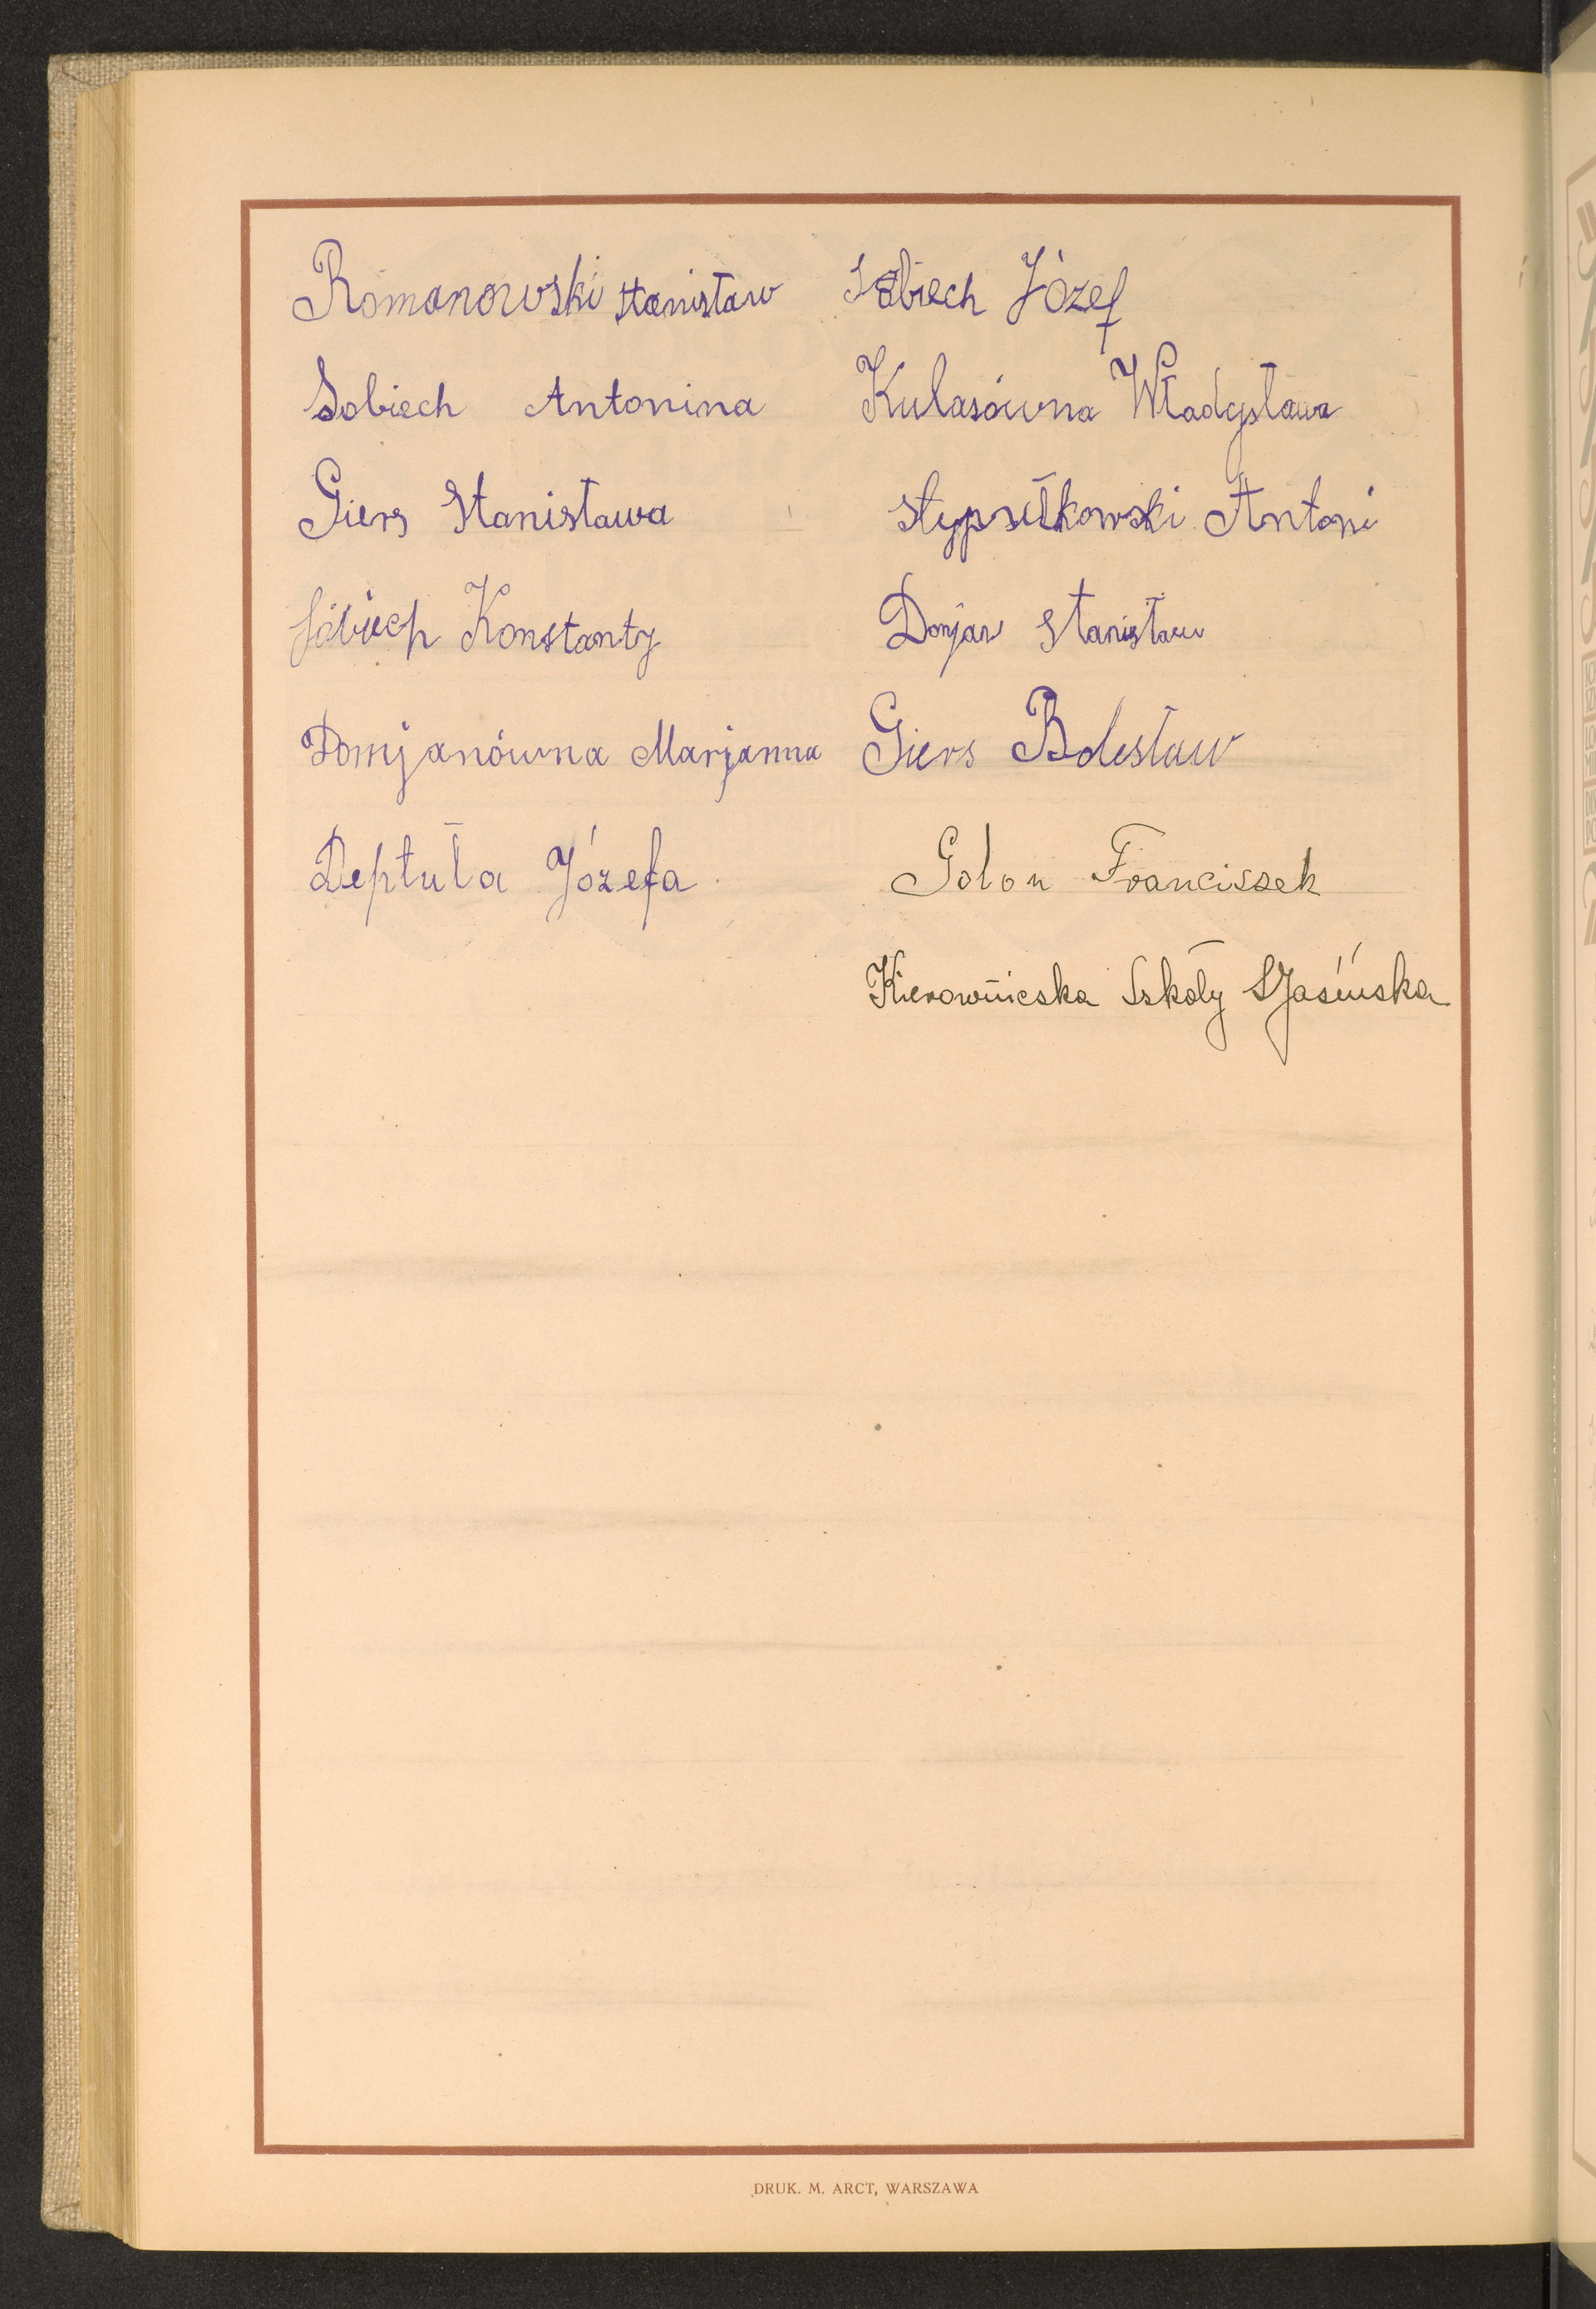 Romanowski Stanisław
Sobiech Antonina
Giers Stanisława
Sobiech Konstanty
Domjanówna Marjanna
Deptuła Józefa
Sobiech Józef
Kulasówna Władysława
Antoni
Domjan Stanisław
Giers Bolesław
Golon Franciszek
Kierowniczka Szkoły SJasińska
DRUK. M. ARCT, WARSZAWA